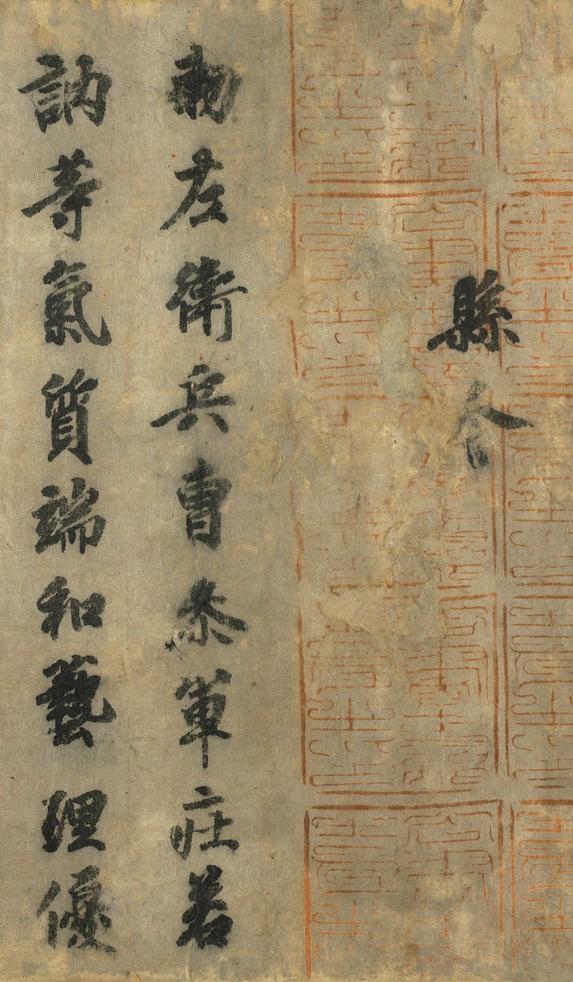 縣令
勅左衛兵曹叅軍莊若
訥等氣質端和藝理優